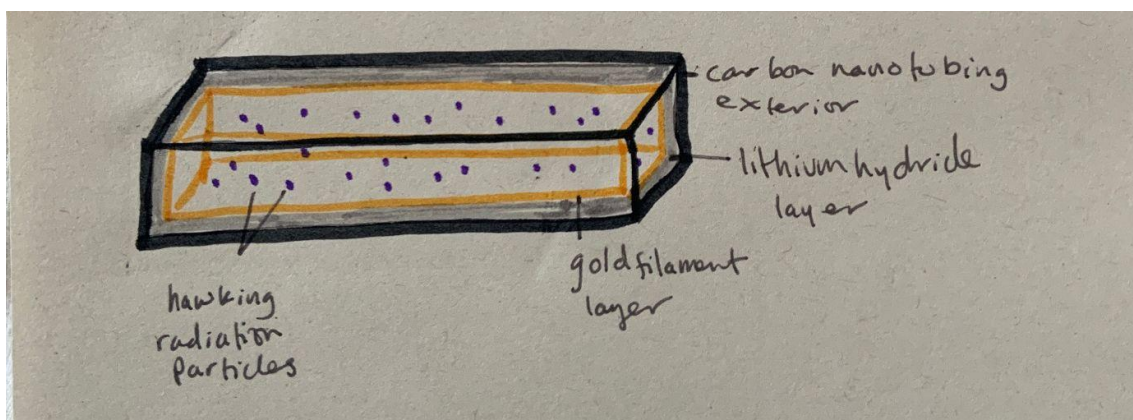 carbon nanotubing
exterior
lithium hydride
layer
gold filament
layer
hawking
radiation
particles